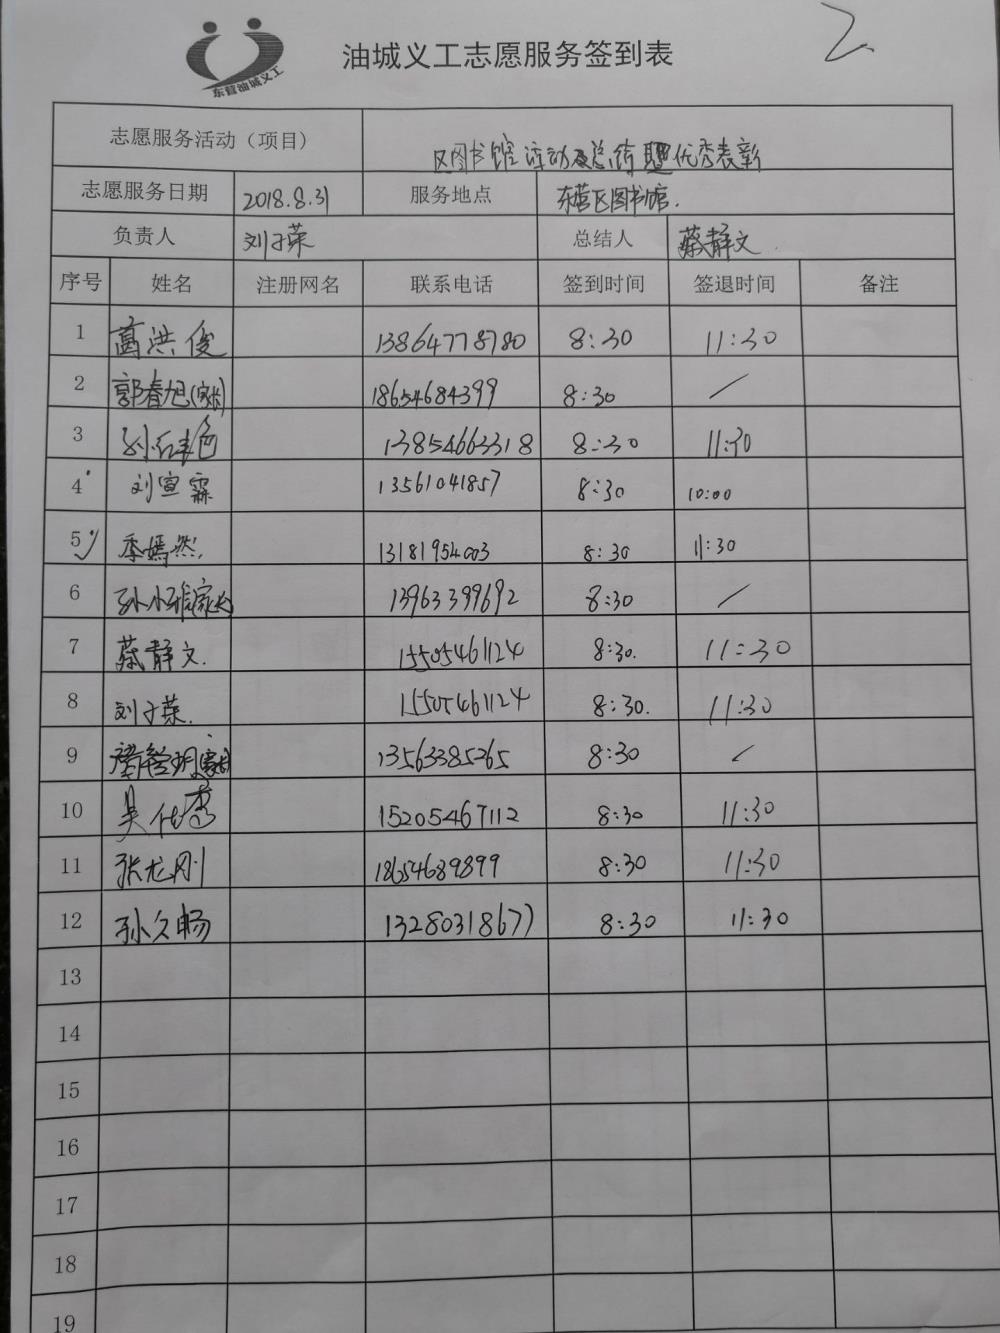 2
东营油城义工
油城义工志愿服务签到表
志愿服务活动（项目） 区图书馆 活动及总结暨优秀表彰
志愿服务日期 2018.8.31 服务地点 东营区图书馆.
负责人 刘子荣 总结人 蔡静文
序号 姓名 注册网名 联系电话 签到时间 签退时间 备注
1 葛洪俊 13864778780 8:30 11:30
2 郭春旭(家长) 18654684399 8:30 /
3 13854663318 8:30 11:30
4 刘宣霖 13561041857 8:30 10:00
5 季嫣然. 13181954003 8:30 11:30
6 孙小雅(家长) 13963399692 8:30 /
7 蔡静文. 15505461124 8:30. 11:30
8 刘子荣. 15505461124 8:30. 11:30
9 (家长) 13563385265 8:30 /
10 吴代秀 15205467112 8:30 11:30
11 张龙刚 18654689899 8:30 11:30
12 孙久畅 13280318677 8:30 11:30
13
14
15
16
17
18
19